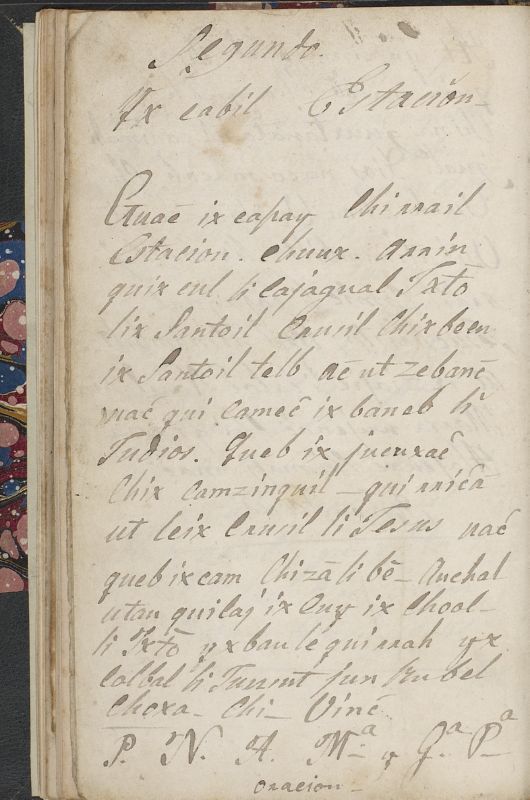 Segundo.
Yx cabil Estacion_
Gnac ix capay Chi rrail
Estacion. chuux. arrin
quix cul li Cajagual Jxto
lix Santoil Crusil Chixbeen
ix Santoil telb ac ut zebanc
nac qui Camec ix baneb li
Judios. Queb ix jucuxac
Chix Camzinquil _ qui rrica
ut leix Crusil li Jesus nac
queb ix cam Chiza li be _ Anchal
utan quilaj ix Cuy ix Chool_
li Jxto yx bau le qui rrah yx
Colbal li Tururt jun Rubel
Choxa _ Chi _ Vinc
P. N. A. Mª y G.ª Pª
oracion _